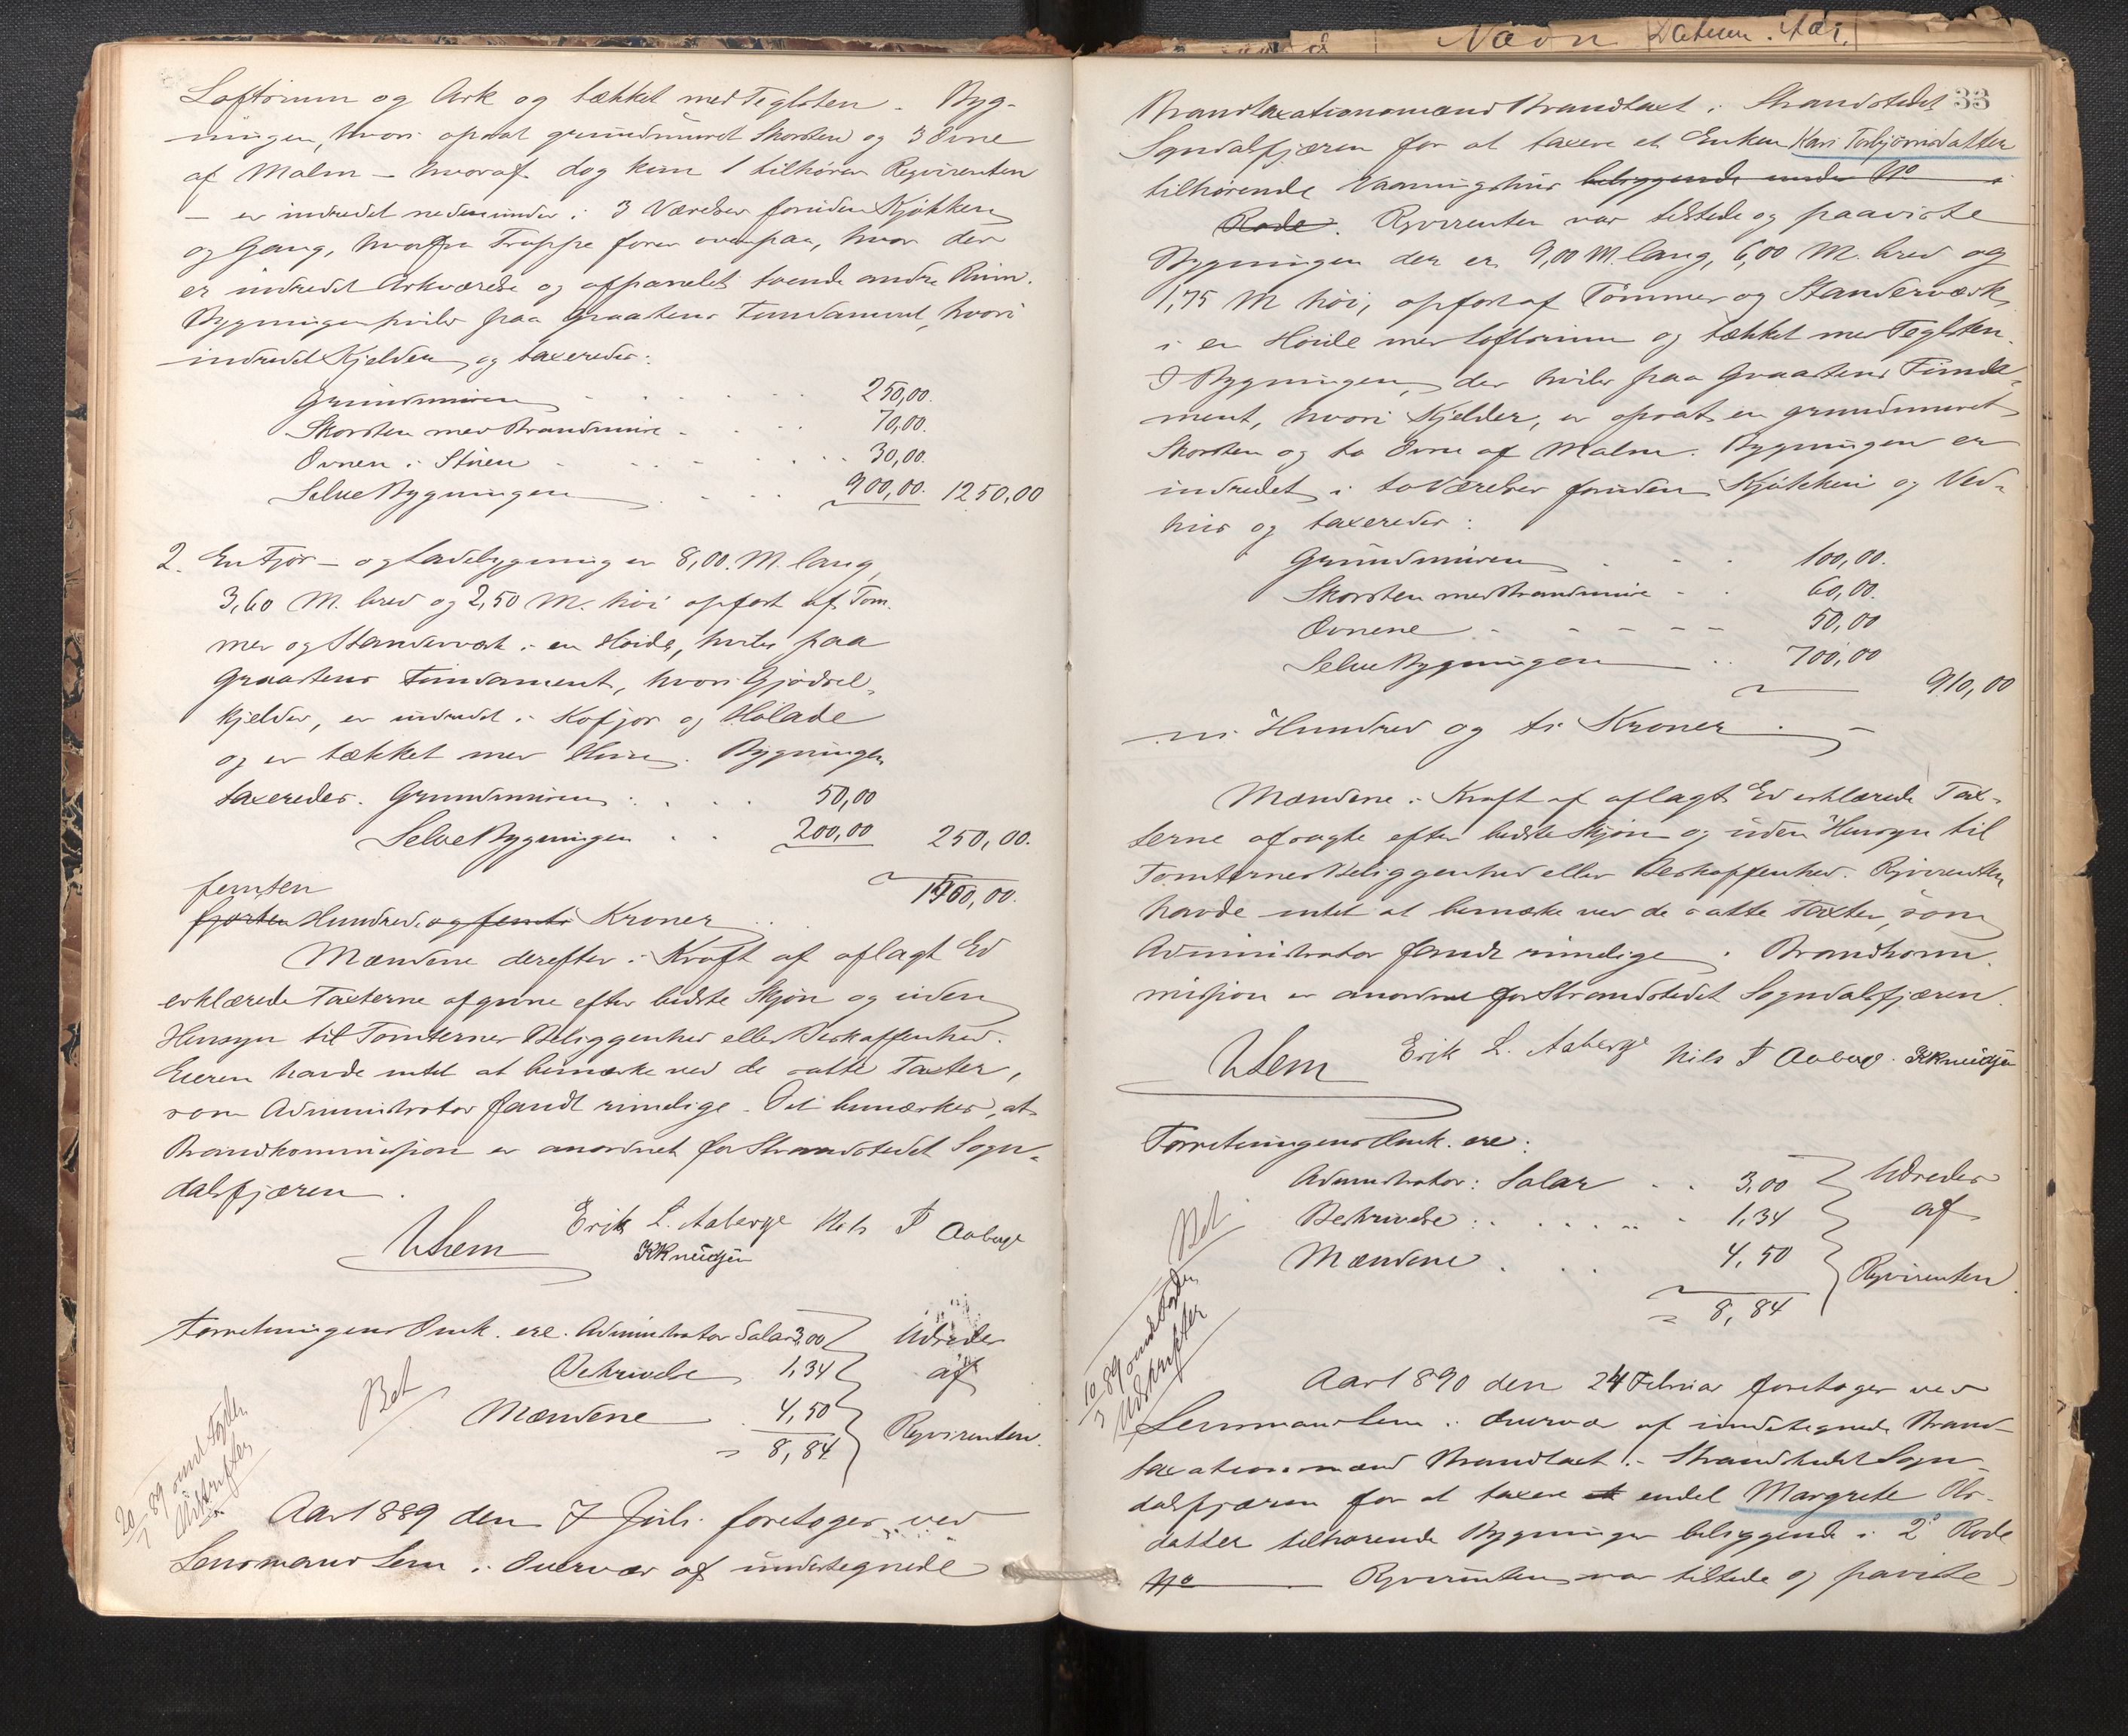 Navn Datum. Aar.
Loftsrum og Ark og tækket med Teglsten. Byg-
ningen, hvori opsat grundmuret Skorsten og 3 Ovne
af Malm – hvoraf dog kun 1 tilhører Reqvirenten
– er indredet nedenunder i 3 Værelser foruden Kjøkken
og Gang, hvorfra Trappe fører ovenpaa, hvor der
er indredet Arkværelse og afpanelet tvende andre Rum.
Bygningen hviler paa Graastens Fundament, hvori
indredet Kjelder, og taxeredes:
Grundmuren 250,00.
Skorsten med Brandmure 70,00.
Ovnen i Stuen 30,00.
Selve Bygningen 900,00. 1250,00
2. En Fjøs- og Ladebygning er 8,00. M. lang,
3,60 M. bred og 2,50 M. høi opført af Tøm-
mer og Standerværk i en Høide, hviler paa
Graastens Fundament, hvori Gjødsel-
kjelder, er indredet i Kofjøs og Hølade
og er tækket med Hun. Bygningen
taxeredes. Grundmuren 50,00
Selve Bygningen 200,00 250,00.
femten 1500,00.
fjorten Hundrede og femti Kroner
Mændene derefter i Kraft af aflagt Ed
erklærede Taxterne afgivne efter bedste Skjøn og uden
Hensyn til Tomternes Beliggenhed eller Beskaffenhed.
Eieren havde intet at bemærke ved de satte Taxter,
som Administrator fandt rimelige. Det bemærkes, at
Brandkommission er anordnet for Strandstedet Sogn-
dalsfjæren.
Lem Erik L. Aaberge Nils T Aaberge
K Knudsen
Forretningens Omk. ere. Administrator Salar 3,00 Udredes
Beskrivelse 1,34 af
Bet Mændene 4,50 Reqvirenten.
= 8,84
20/7 89 uds. Taxter
Udskrifter
Aar 1889 den 7 Juli foretoges ved
Lensmand Lem i Overvær af undertegnede
33
Brandtaxationsmænd Brandtaxt i Strandstedet
Sogndalsfjæren for at taxere et Enken Kari Torbjørnsdatter
tilhørende Vaaningshus beliggende under No i
Rode. Reqvirenten var tilstede og paaviste
Bygningen der er 9,00 M. lang, 6,00 M. bred og
1,75 M høi, opført af Tømmer og Standerværk
i en Høide med Loftsrum og tækket med Teglsten.
I Bygningen, der hviler paa Graastens Funda-
ment, hvori Kjelder, er opsat en grundmuret
Skorsten og to Ovne af Malm. Bygningen er
indredet i to Værelser foruden Kjøkken og Ved-
hus og taxeredes:
Grundmuren 100,00.
Skorsten med Brandmure 60,00.
Ovnene 50,00
Selve Bygningen 700,00
910,00
ni Hundred og ti Kroner
Mændene i Kraft af aflagt Ed erklærede Tax-
terne afsagte efter bedste Skjøn og uden Hensyn til
Tomternes Beliggenhed eller Beskaffenhed. Reqvirenten
havde intet at bemærke ved de satte Taxter, som
Administrator fandt rimelige. Brandkom-
mission er anordnet for Strandstedet Sogndalsfjæren.
Lem Erik L. Aaberge Nils T Aaberge. K Knudsen
Forretningens Omk. ere:
Administrator: Salar 3,00 Udredes
Bet Beskrivelse: 1,34 af
Mændene 4,50 Reqvirenten.
= 8,84
Udskrifter
Aar 1890 den 24 Februar foretoges ved
Lensmand Lem i Overvær af undertegnede Brand-
taxationsmænd Brandtaxt i Strandstedet Sogn-
dalsfjæren for at taxere et endel Margrete Ols-
datter tilhørende Bygninger beliggende i 2den Rode
No Reqvirenten var tilstede og paaviste